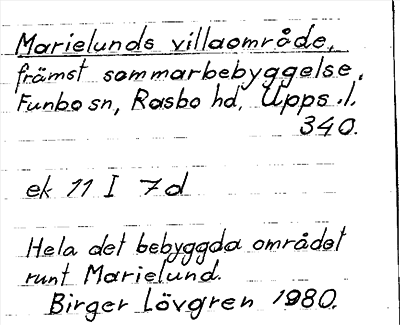 Marielunds villaområde,
främst sommarbebyggelse,
Funbo sn, Rasbo hd, Upps. l.
340.
ek 11 I 7d
Hela det bebyggda området
runt Marielund.
Birger Lövgren 1980.